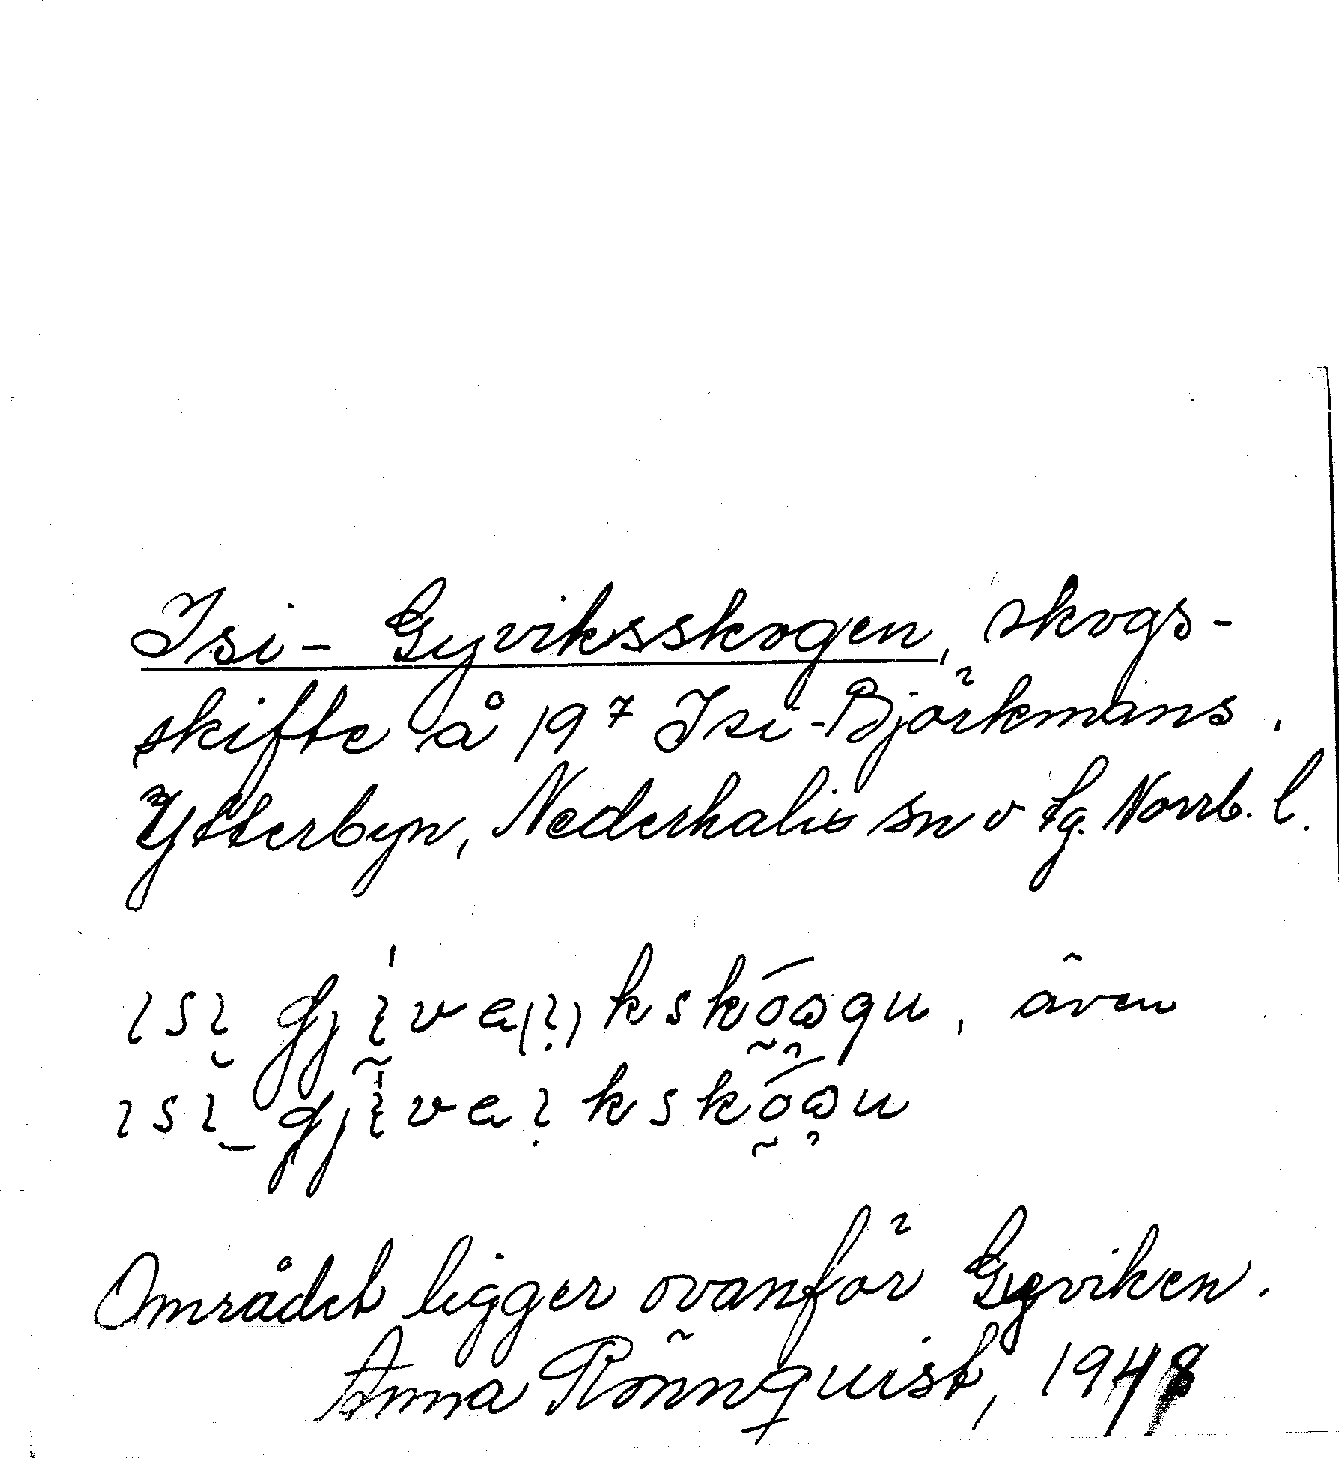 Isi-Gyviksskogen, skogs-
skifte å 19⁷ Isi-Björkmans.
Ytterbyn, Nederkalix sn o tg. Norrb. l.
ɩsɩ̮ gjɩ̀va(ɩ̣)kskóωgu, även
ɩsɩ gjɩ̀vaɩ̣kskóωu
Området ligger ovanför Gyviken.
Anna Rönnquist, 1948